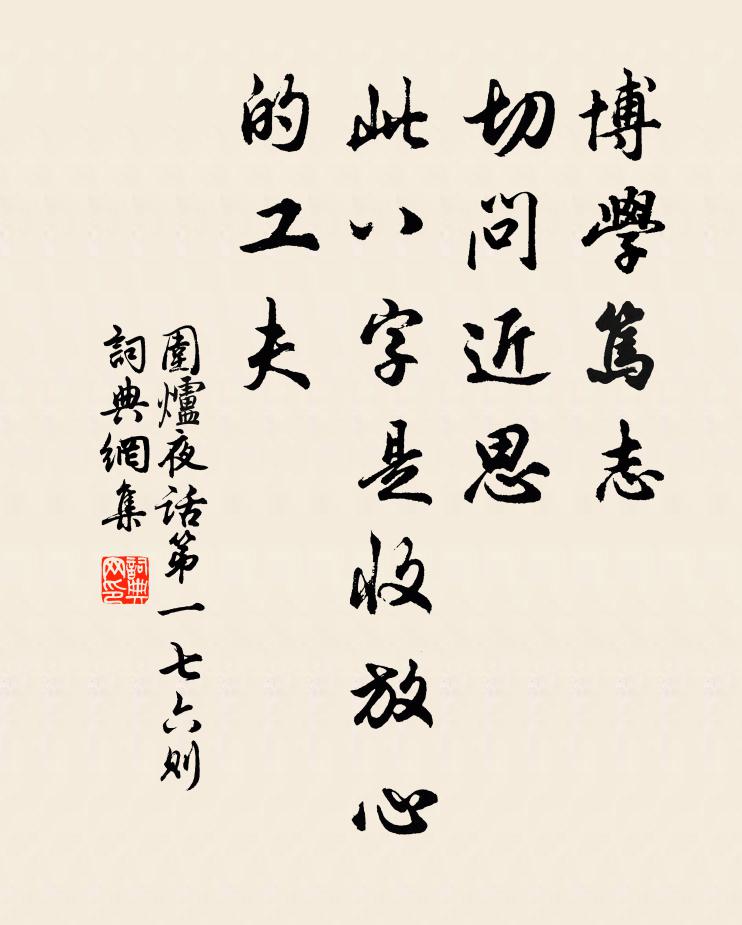 博學篤志
切問近思
此八字是收放心
的工夫
圍爐夜話第一七六則
詞典網集
詞典
网印